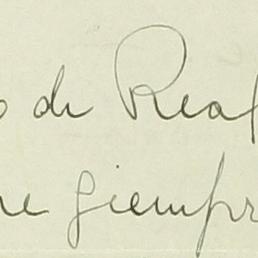 o de Real
ne siempr